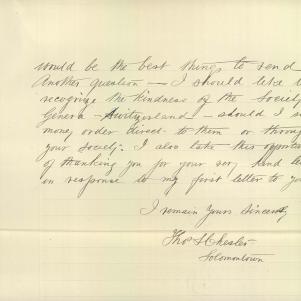 would be the best things to send
Another question — I should like t
recognize the kindness of the Society
Geneva - Switzerland - should I s
money order direct to them or throug
your society. I also take this opportu
of thanking you for your very kind let
in response to my first letter to yo
I remain Yours Sincerely
Thos S Chesler
Solomontown